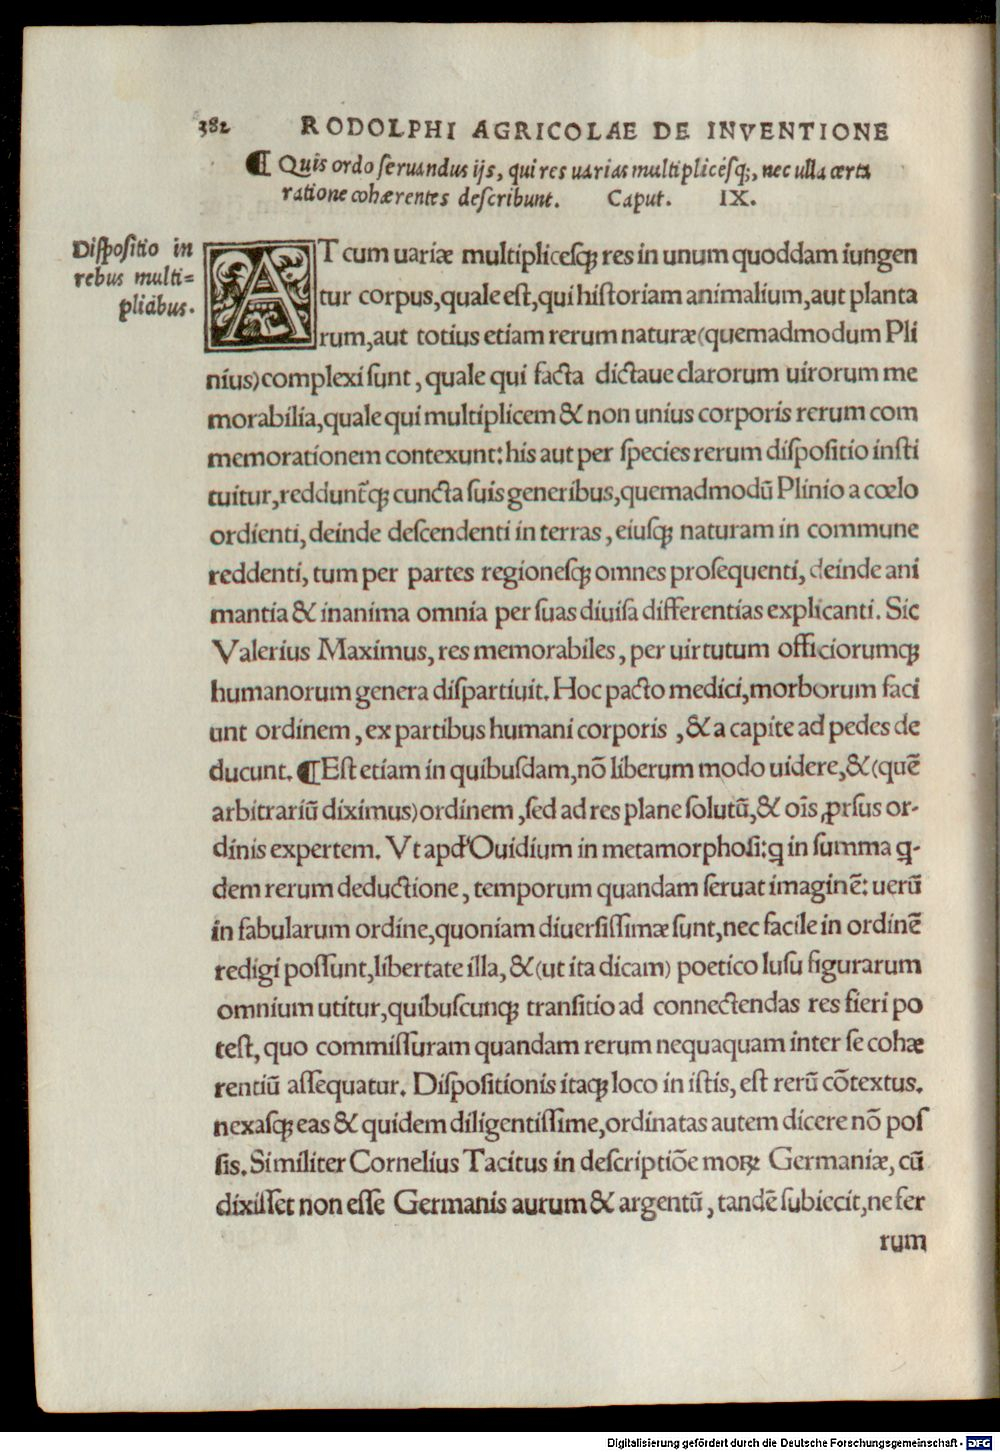 382 RODOLPHI AGRICOLAE DE INVENTIONE
¶ Quis ordo ſeruandus ijs, qui res uarias multiplicésq;, nec ulla certa
ratione cohærentes deſcribunt. Caput. IX.
Diſpoſitio in
rebus multi=
plicibus.
AT cum uariæ multiplicesq; res in unum quoddam iungen
tur corpus, quale eſt, qui hiſtoriam animalium, aut planta
rum, aut totius etiam rerum naturæ (quemadmodum Pli
nius) complexi ſunt, quale qui facta dictaue clarorum uirorum me
morabilia, quale qui multiplicem & non unius corporis rerum com
memorationem contexunt: his aut per ſpecies rerum diſpoſitio inſti
tuitur, reddunt̃q; cuncta ſuis generibus, quemadmodū Plinio a cœlo
ordienti, deinde deſcendenti in terras, eiuſq; naturam in commune
reddenti, tum per partes regioneſq; omnes proſequenti, deinde ani
mantia & inanima omnia per ſuas diuiſa differentias explicanti. Sic
Valerius Maximus, res memorabiles, per uirtutum officiorumq;
humanorum genera diſpartiuit. Hoc pacto medici, morborum faci
unt ordinem, ex partibus humani corporis, & a capite ad pedes de
ducunt. ¶ Eſt etiam in quibuſdam, nō liberum modo uidere, & (quē
arbitrariū diximus) ordinem, ſed ad res plane ſolutū, & oīs ꝓrſus or-
dinis expertem. Vt apd' Ouidium in metamorphoſi: q in ſumma q-
dem rerum deductione, temporum quandam ſeruat imaginē: uerū
in fabularum ordine, quoniam diuerſiſſimæ ſunt, nec facile in ordinē
redigi poſſunt, libertate illa, & (ut ita dicam) poetico luſu figurarum
omnium utitur, quibuſcunq; tranſitio ad connectendas res fieri po
teſt, quo commiſſuram quandam rerum nequaquam inter ſe cohæ
rentiū aſſequatur. Diſpoſitionis itaq; loco in iſtis, eſt rerū cōtextus.
nexaſq; eas & quidem diligentiſſime, ordinatas autem dicere nō poſ
ſis. Similiter Cornelius Tacitus in deſcriptiōe moꝝ Germaniæ, cū
dixiſſet non eſſe Germanis aurum & argentū, tandē ſubiecit, ne fer
rum
Digitalisierung gefördert durch die Deutsche Forschungsgemeinschaft - DFG